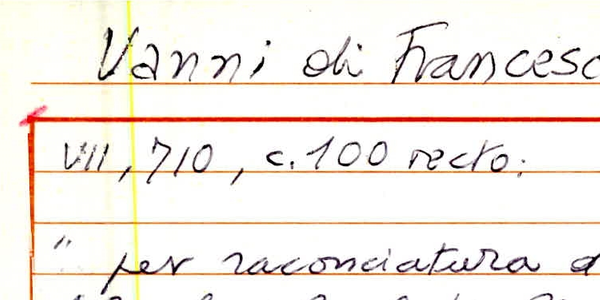 Vanni di Francesc
VII, 710, c. 100 recto:
" per raconciatura d